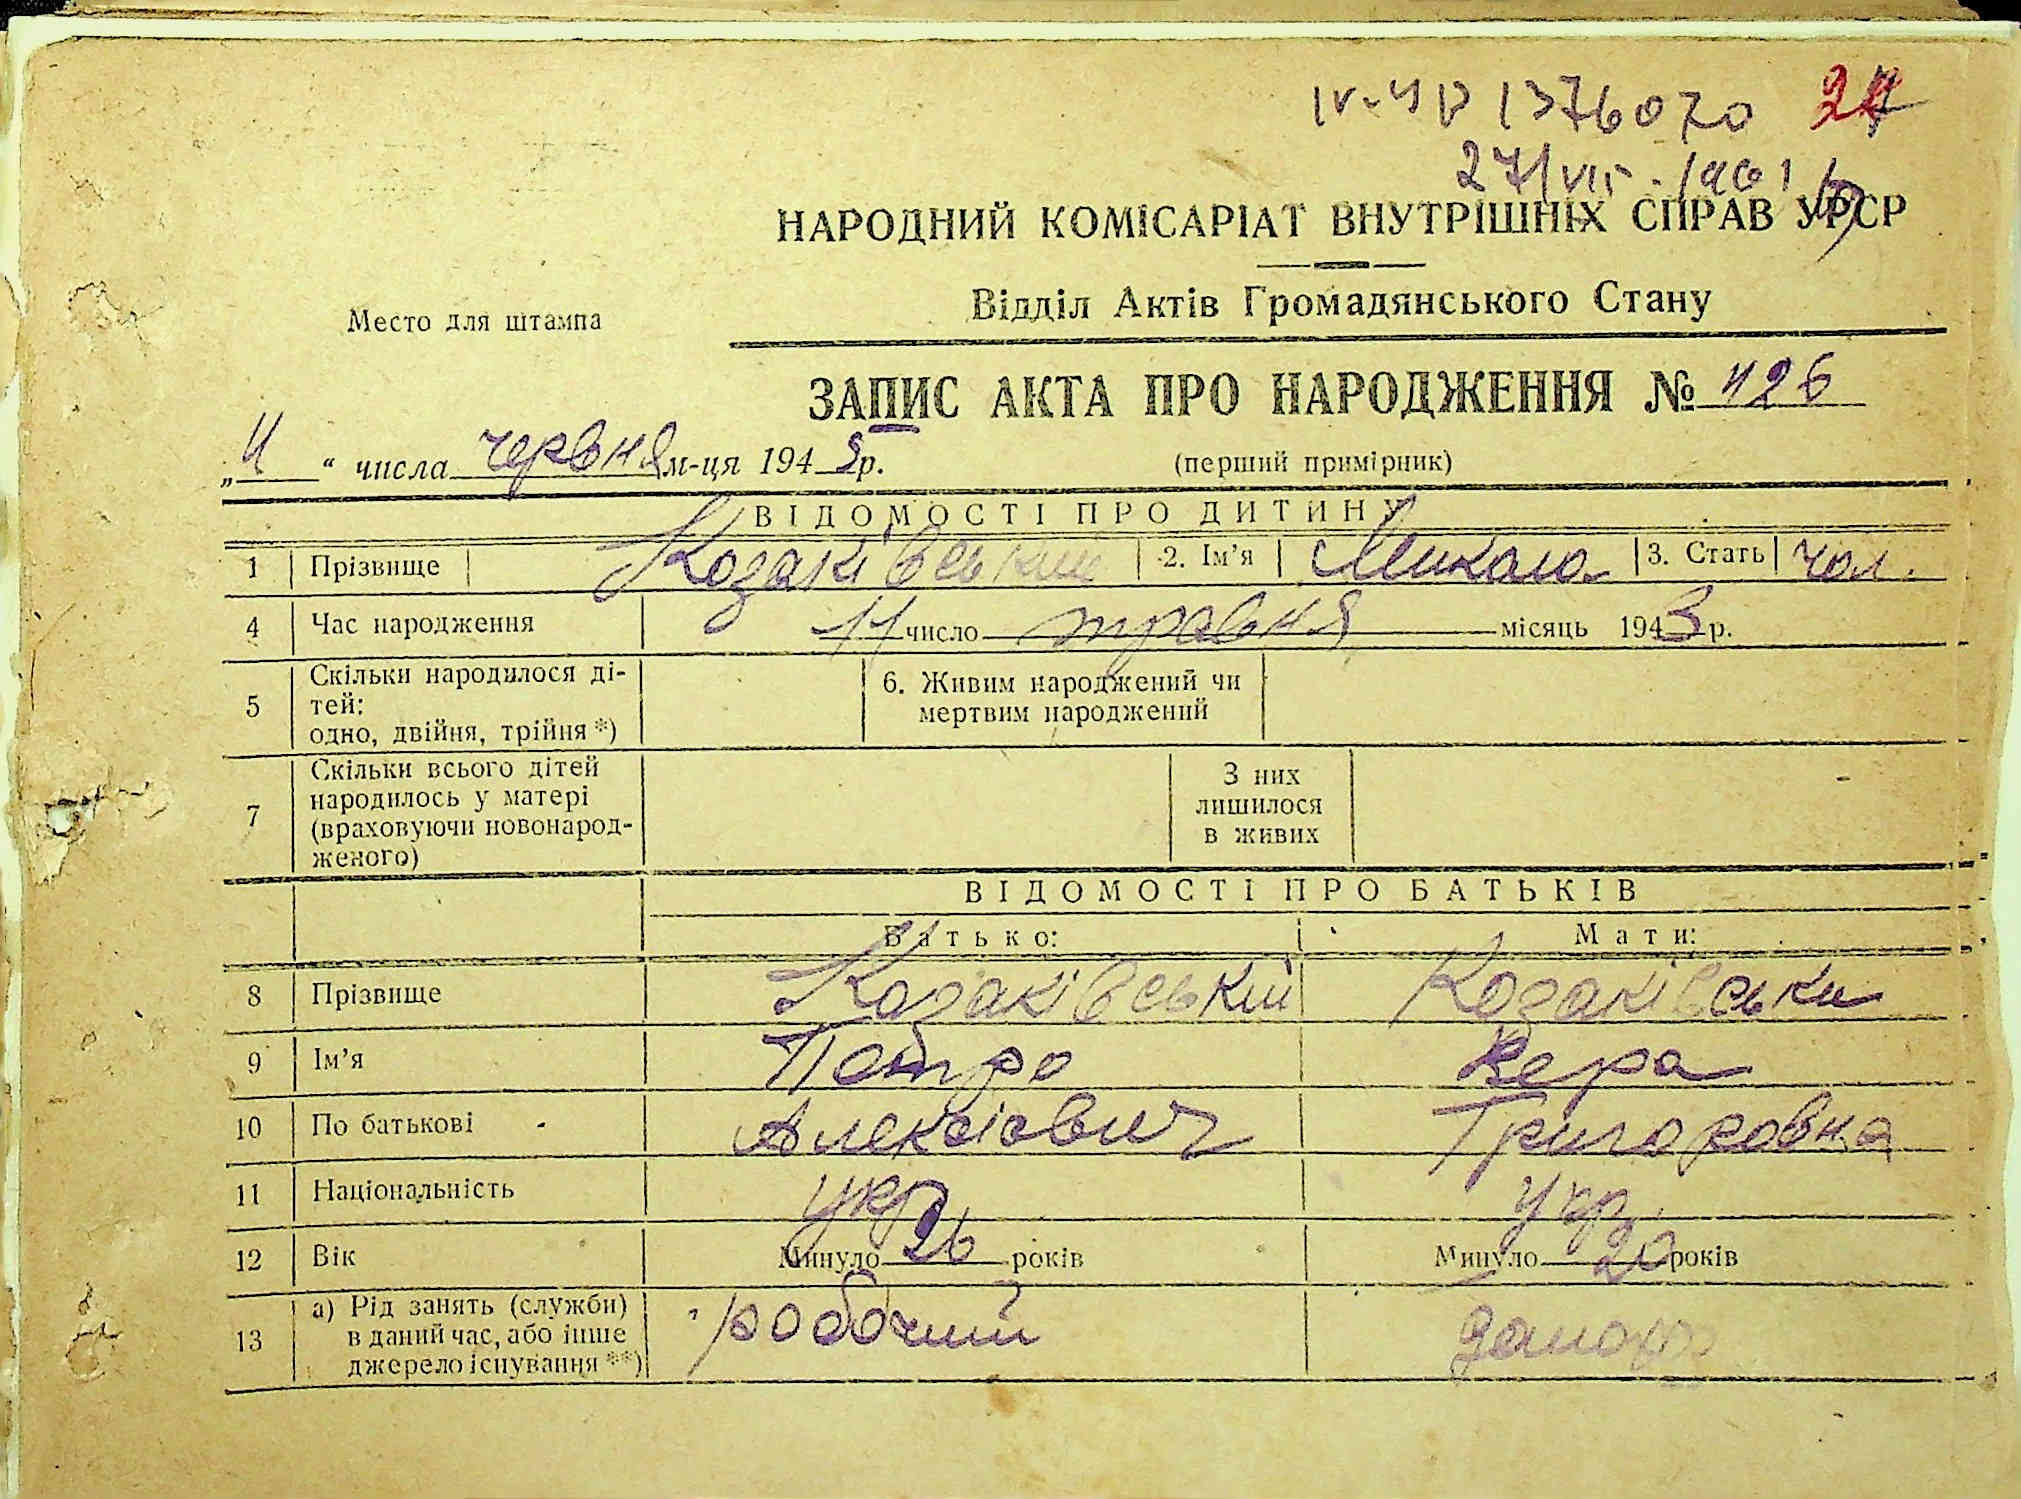 IV-УБ 1376070 24
27/VII - 1961
НАРОДНИЙ КОМІСАРІАТ ВНУТРІШНІХ СПРАВ УРСР
Відділ Актів Громадянського Стану
Место для штампа
ЗАПИС АКТА ПРО НАРОДЖЕННЯ № 426
„4“ числа червня м-ця 1943 р. (перший примірник)
ВІДОМОСТІ ПРО ДИТИНУ
1 Прізвище Козаківський 2. Ім'я Микола 3. Стать чол.
4 Час народження 11 число травня місяць 1943 р.
5 Скільки народилося ді-
тей:
одно, двійня, трійня *)
6. Живим народжений чи
мертвим народжений
7 Скільки всього дітей
народилось у матері
(враховуючи новонарод-
женого)
З них
лишилося
в живих
ВІДОМОСТІ ПРО БАТЬКІВ
Батько: Мати:
8 Прізвище Козаківський Козаківськи
9 Ім'я Петро Вера
10 По батькові Алексієвич Григоровна
11 Національність укр укр.
12 Вік Минуло 26 років Минуло 20 років
13 а) Рід занять (служби)
в даний час, або інше
джерело існування **)
робочий